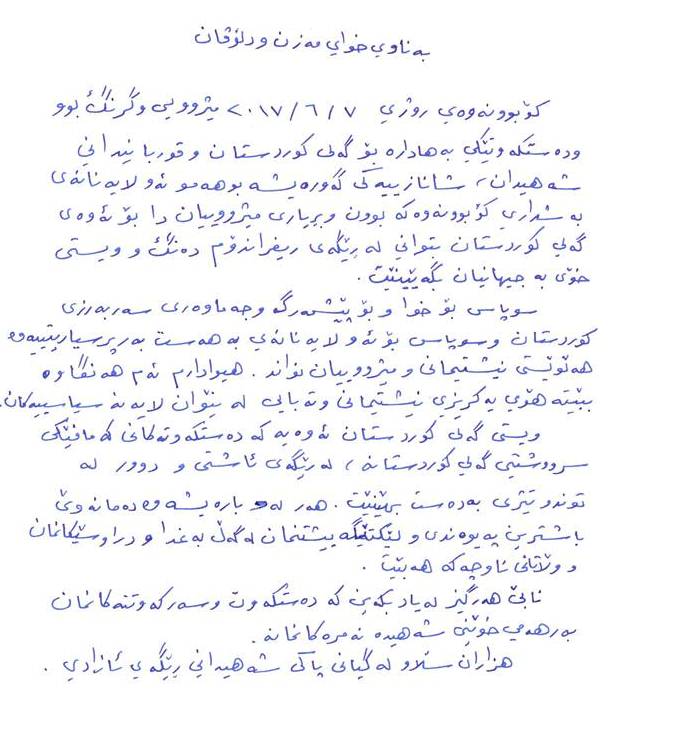 بەناوي خواي مەزن و دلۆڤان
كۆبوونەوەي روژي ٢٠١٧/٦/٧ مێژوویي و گرنگ بوو
و دەستكەوتێكي بەهادارە بۆ گەلی كوردستان و قوربانیداني
شەهیدان، شانازییەكی گەورەیشە بو هەموو ئەو لایەنانەی
بەشداري كۆبوونەوەكە بوون و بڕیاری مێژووییان دا بۆ ئەوەی
گەلی كوردستان بتواني لە ڕێگەی ریفراندۆم دەنگ و ویستی
خۆی بە جیهانیان بگەیێنێت.
سوپاس بۆ خوا و بۆ پێشمەرگە و جەماوەری سەربەرزی
كوردستان و سوپاس بۆ ئەو لایەنانەي بە هەست بەرپرسیاریێتییەوە
هەڵوێستی نیشتیماني و مێژووییان نواند. هیوادارم ئەم هەنگاوە
ببێتە هۆي یەكریزي نیشتیمانی و تەبایی لە نێوان لایەنە سیاسییەكان.
ویستی گەلی كوردستان ئەوەیە كە دەستكەوتەكانی كە مافێكی
سرووشتیي گەلی كوردستانە، لە ڕێگەی ئاشتی و دوور لە
توندوتیژی بەدەست بهێنێت. هەر لەو بارەیشەوە دەمانەوێ
باشترین پەیوەندی و لێكتێگەیشتنمان لەگەڵ بەغدا و دراوسێكانمان
و وڵاتانی ناوچەكە هەبێت.
نابێ هەرگیز لەیاد بكەین كە دەستكەوت و سەركەوتنەكانمان
بەرهەمي خوێنی شەهیدە نەمرەكانمانە.
هزاران سڵاو لە گیانی پاكی شەهیداني ڕێگەي ئازادي.